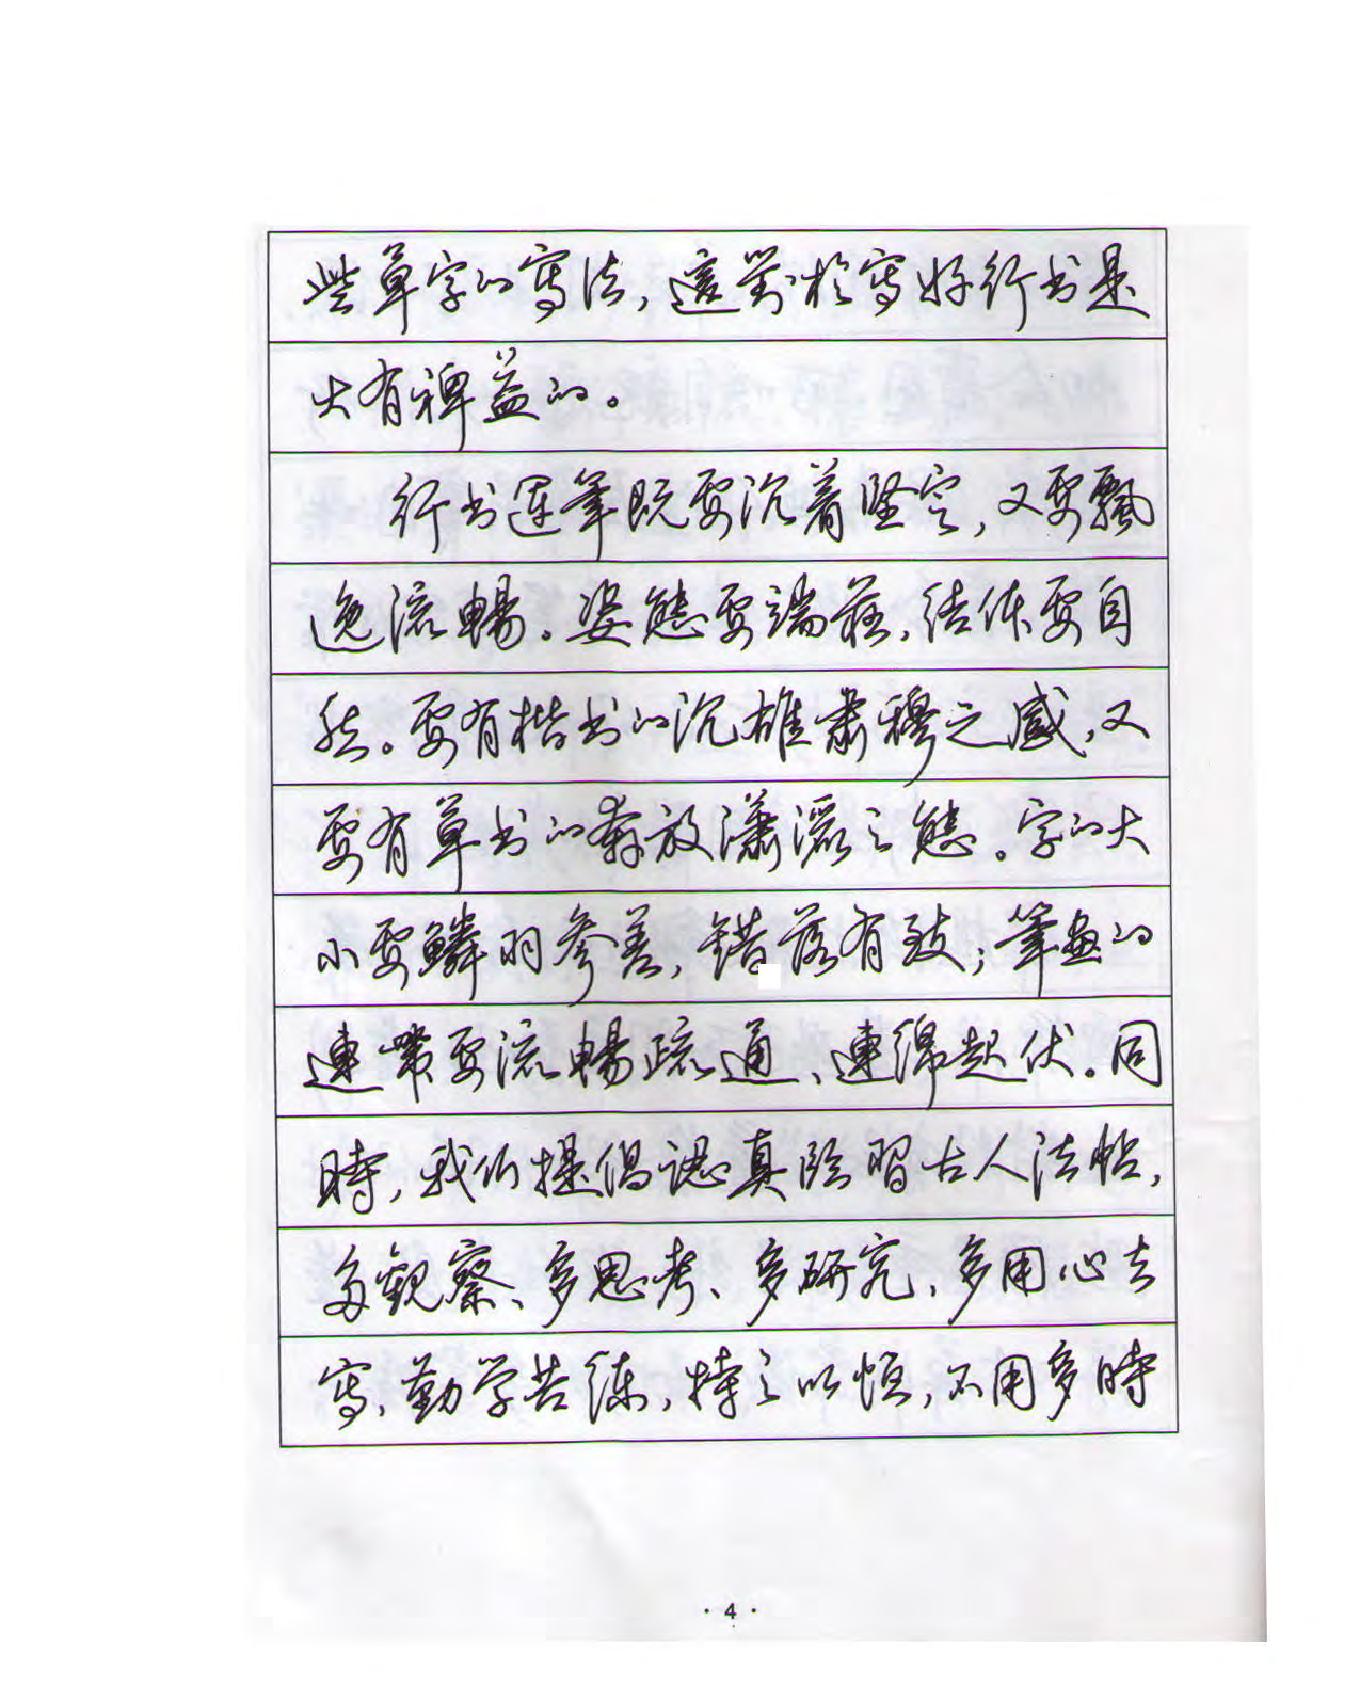 些草字的寫法，這對於寫好行书是
大有裨益的。
行书運筆既要沉着坚定，又要飄
逸流暢。姿態要端莊，结体要自
然。要有楷书的沉雄肅穆之感，又
要有草书的奔放瀟灑之態。字的大
小要鱗羽參差，錯落有致；筆畫的
連帶要流暢疏通、連綿起伏。同
時，我们提倡認真临習古人法帖，
多觀察、多思考、多研究，多用心去
寫，勤学苦练，持之以恒，不用多時
· 4 ·